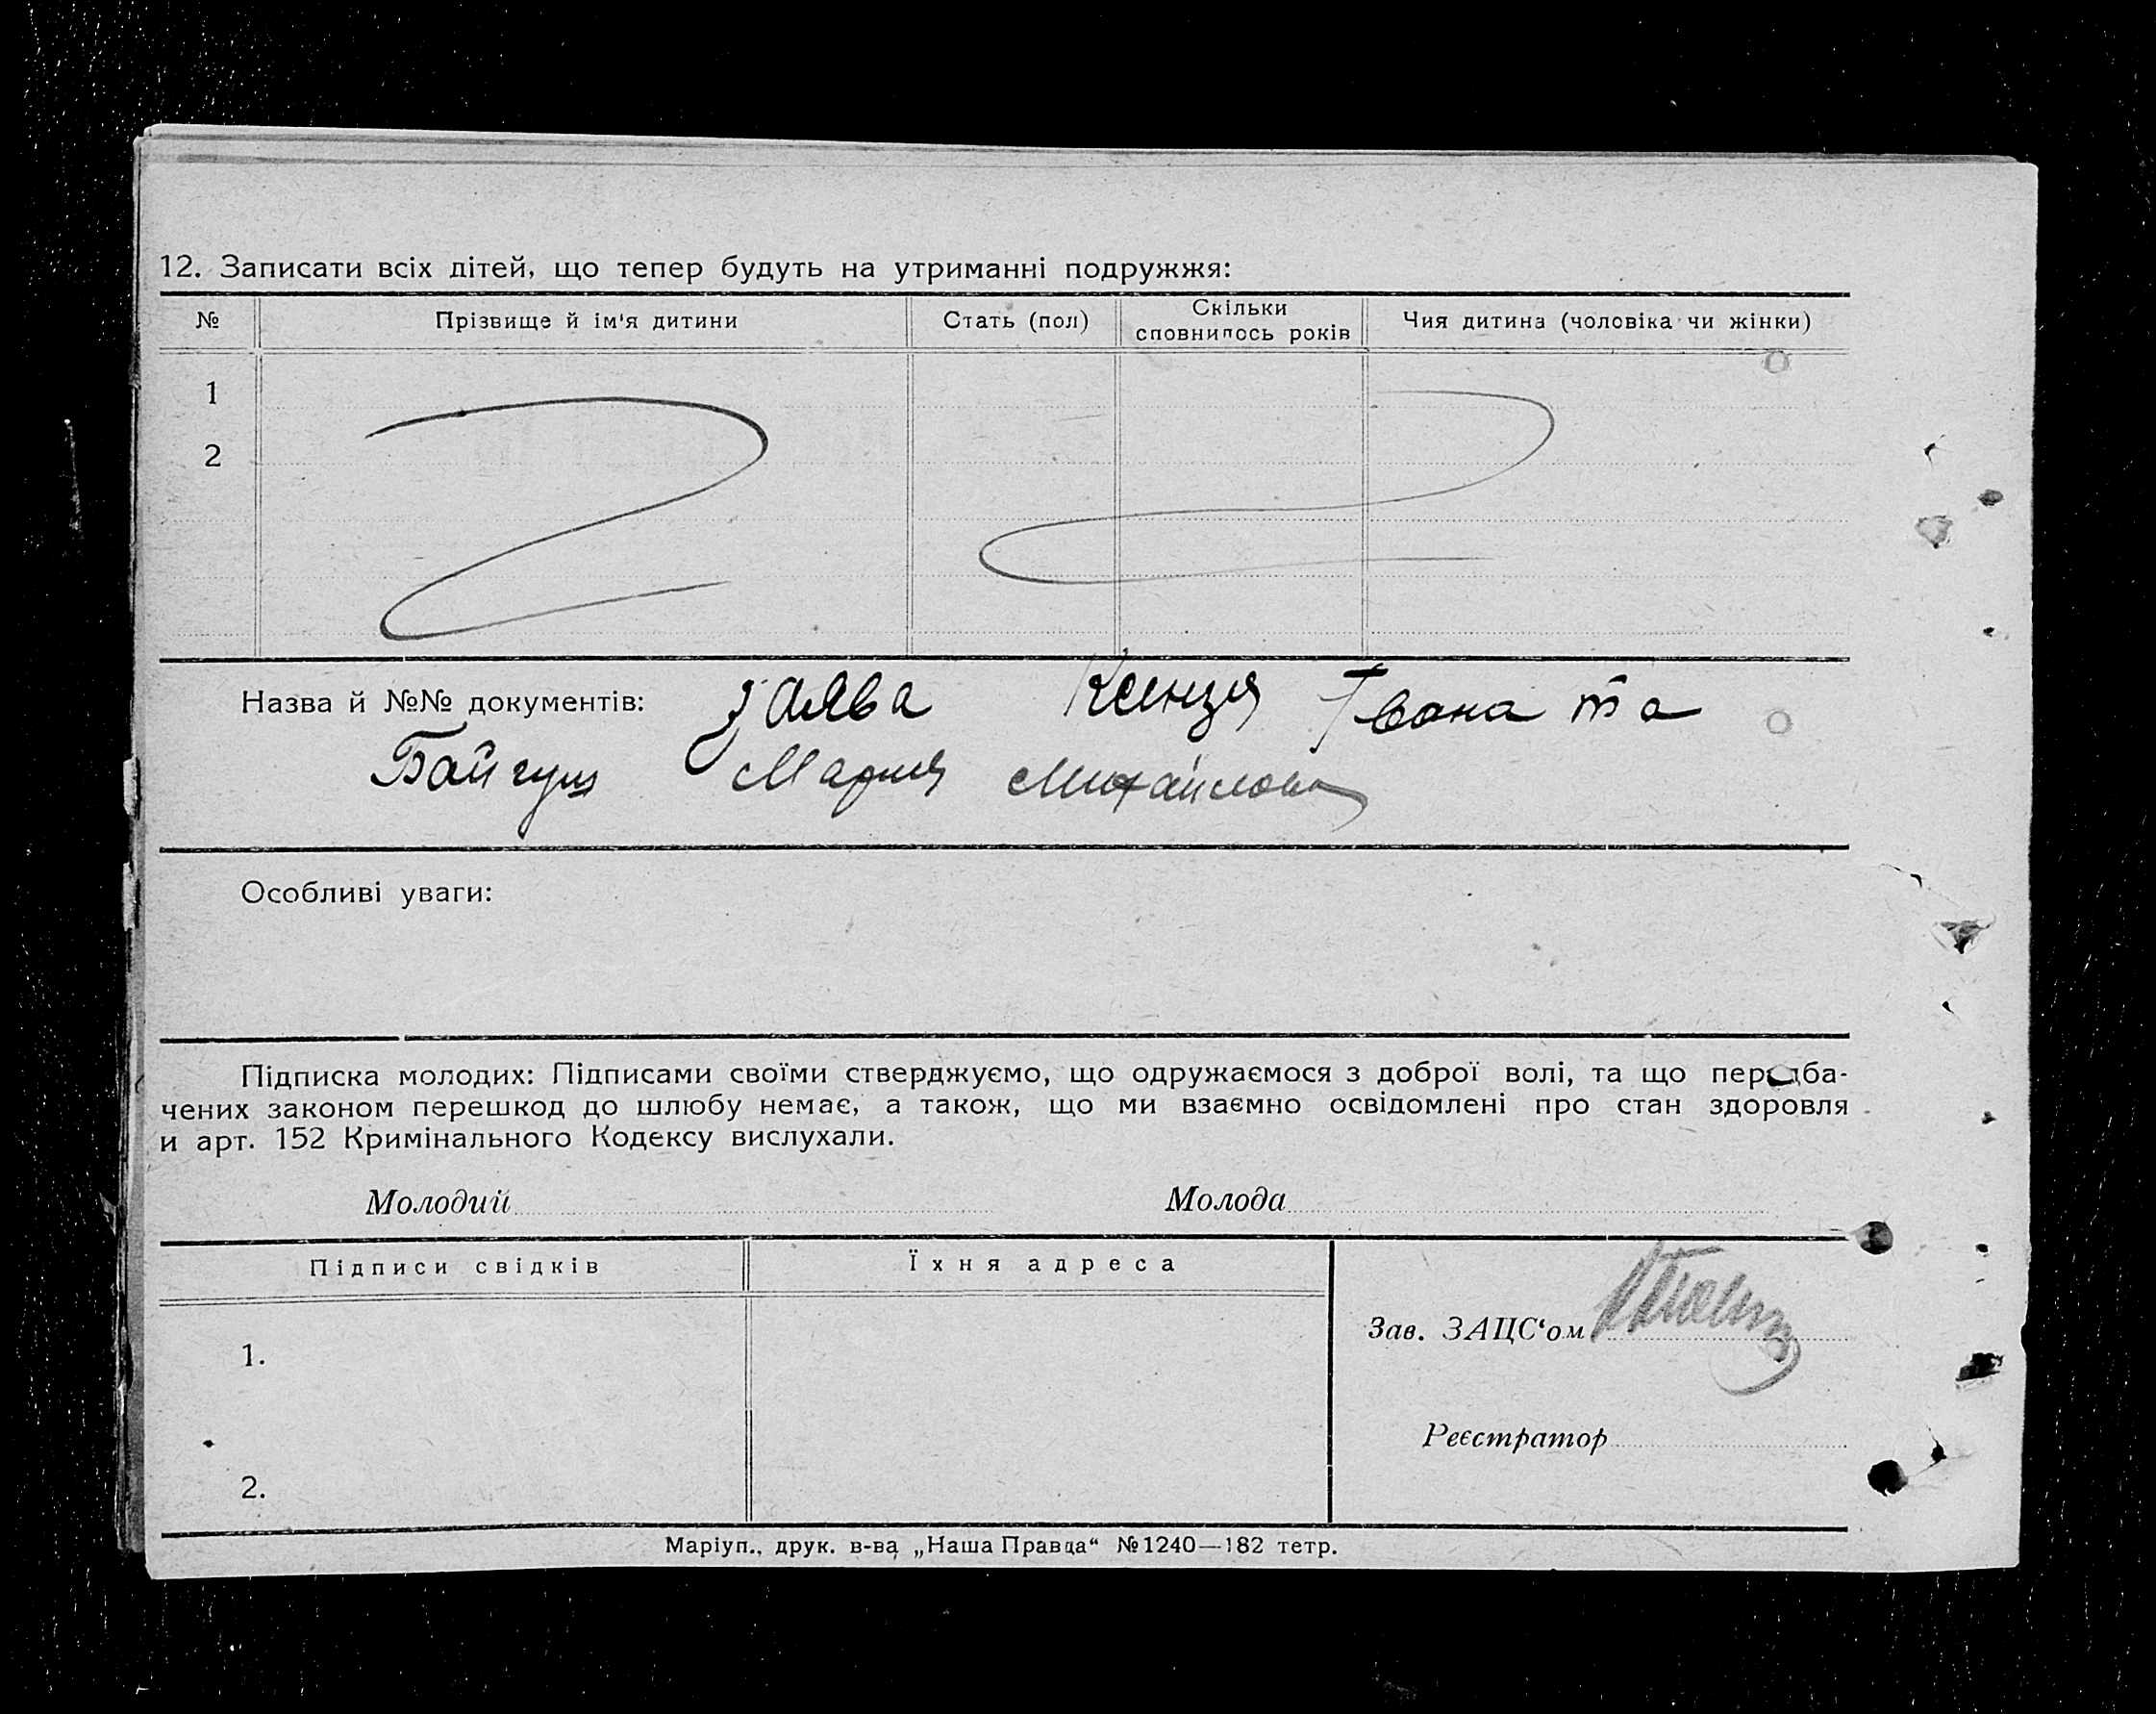 12. Записати всіх дітей, що тепер будуть на утриманні подружжя:
№ Прізвище й ім'я дитини Стать (пол) Скільки сповнилось років Чия дитина (чоловіка чи жінки)
1
2
Назва й №№ документів: заява Івана та
Байгуш Мария
Особливі уваги:
Підписка молодих: Підписами своїми стверджуємо, що одружаємося з доброї волі, та що передба-
чених законом перешкод до шлюбу немає, а також, що ми взаємно освідомлені про стан здоровля
и арт. 152 Кримінального Кодексу вислухали.
Молодий Молода
Підписи свідків Їхня адреса
Зав. ЗАЦС‘ом
1.
Реєстратор
2.
Маріуп., друк. в-ва „Наша Правда“ №1240—182 тетр.